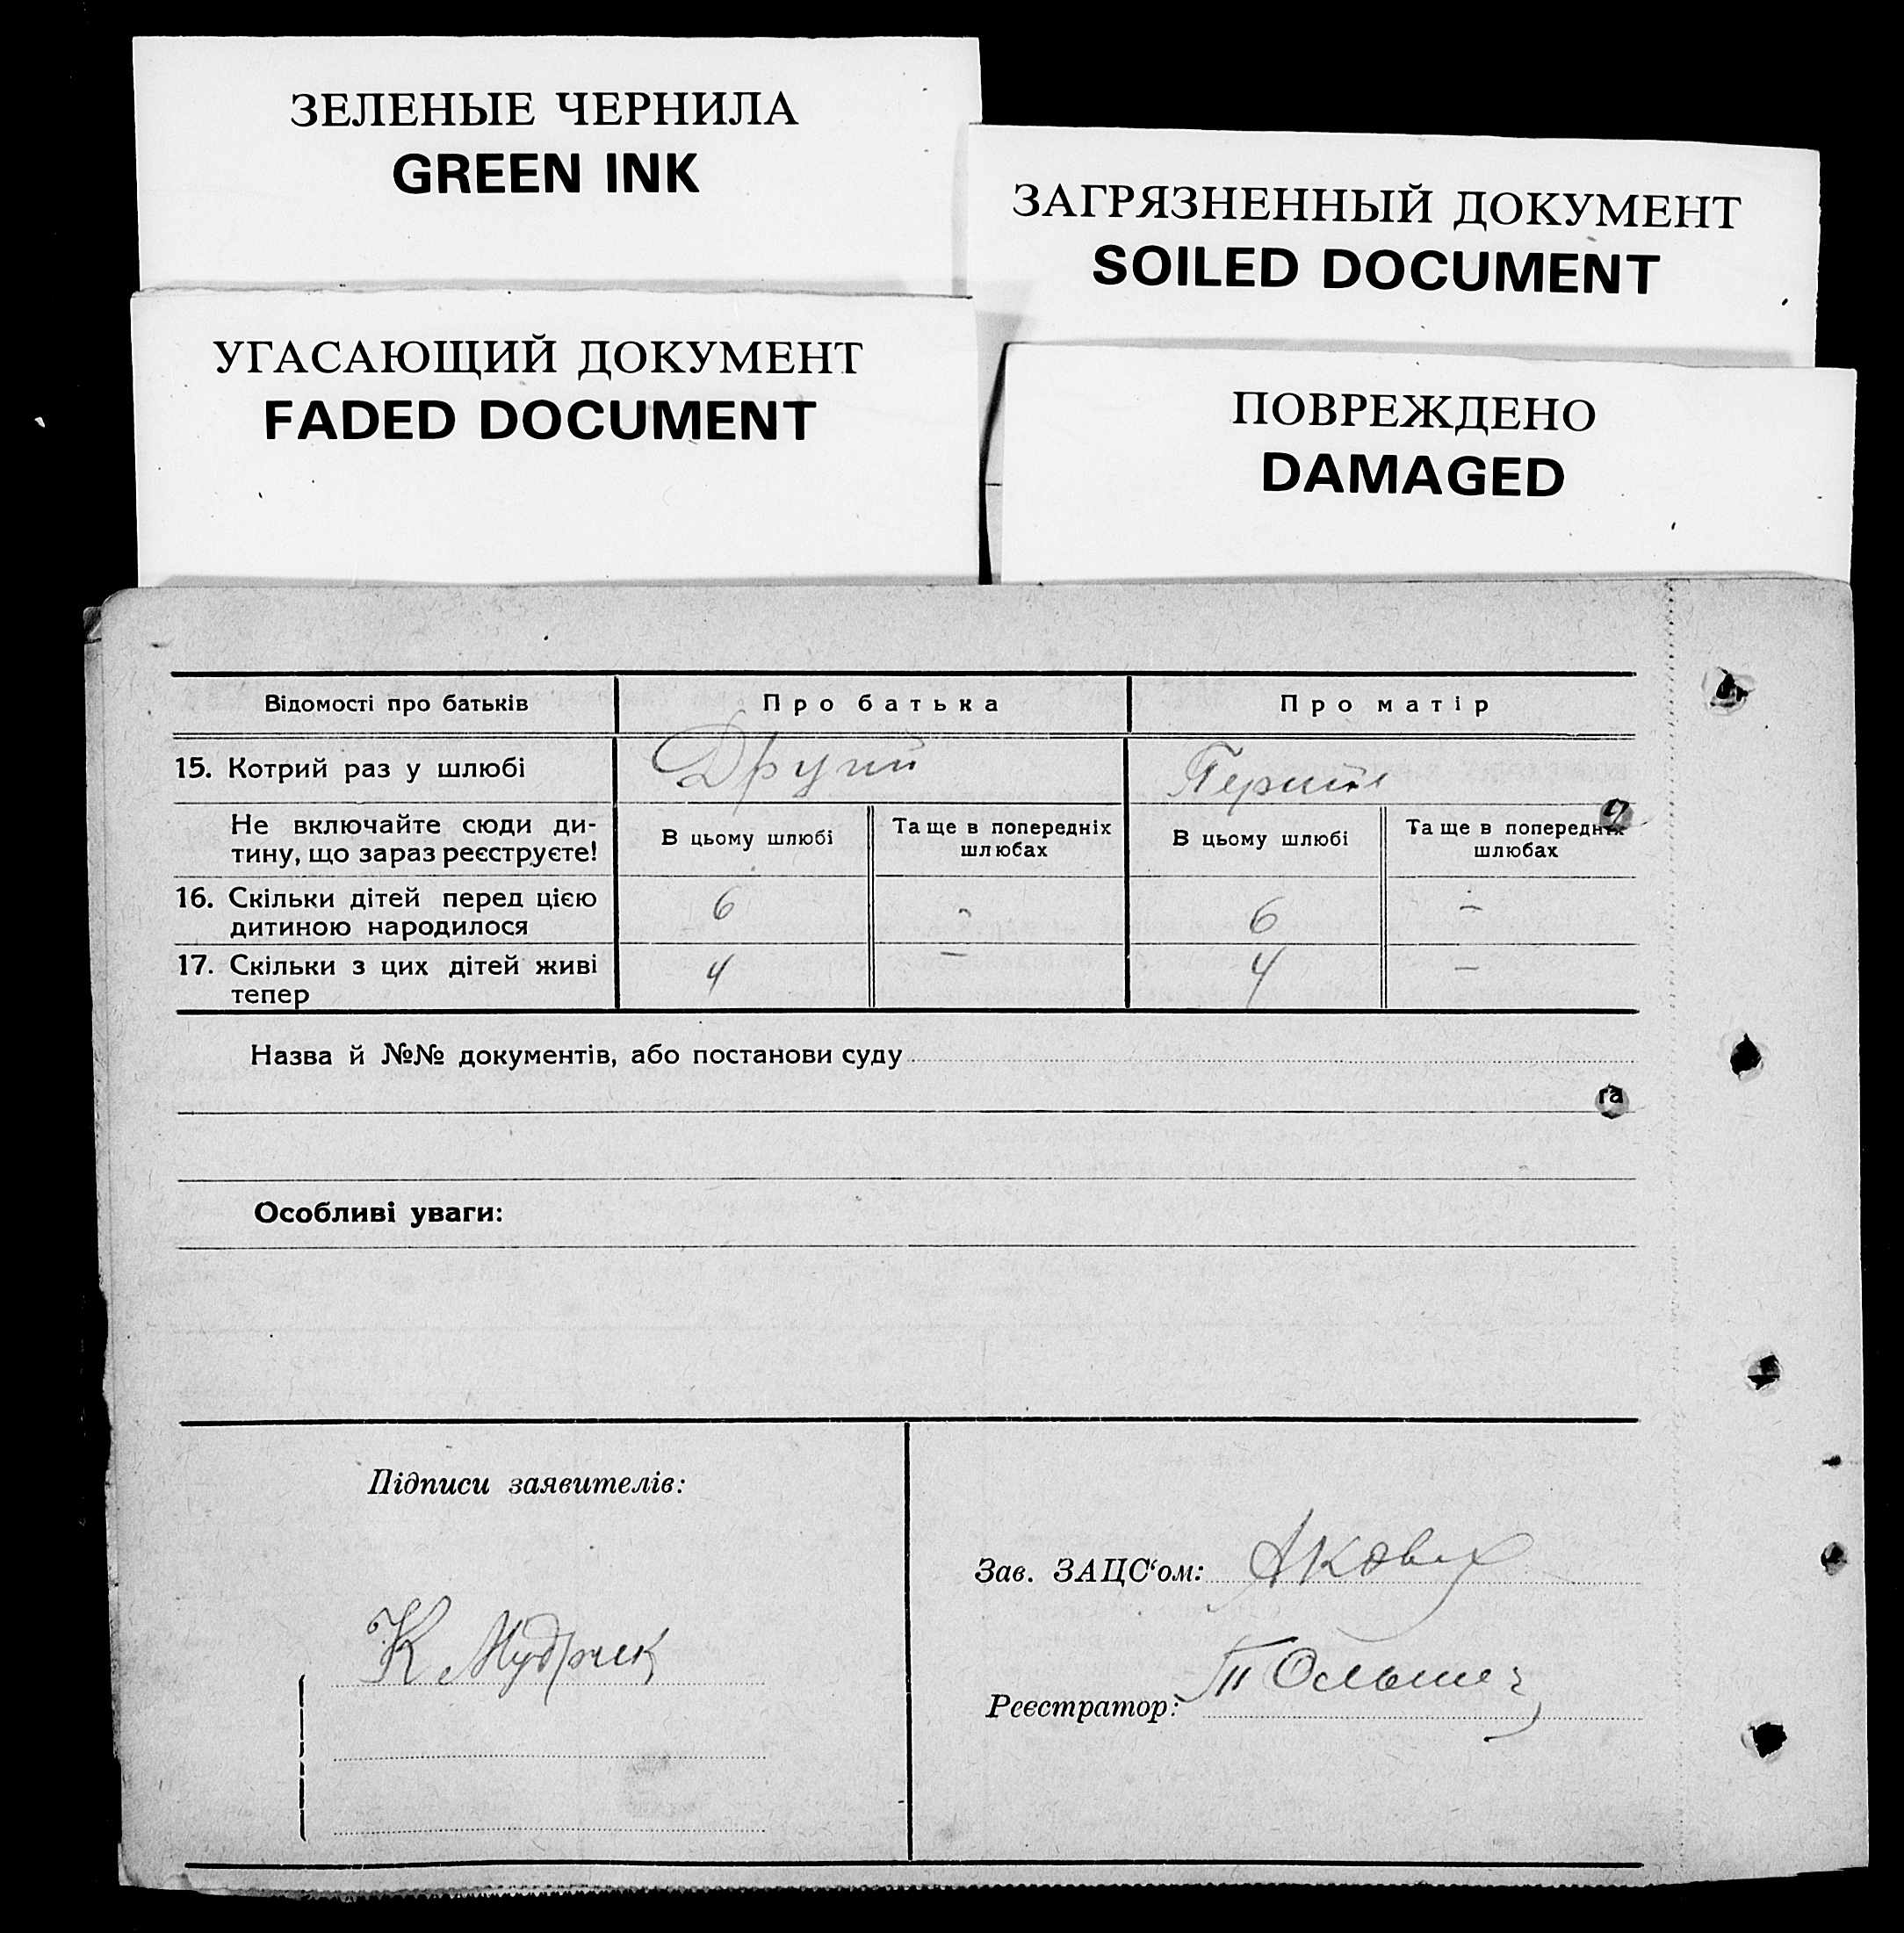 ЗЕЛЕНЫЕ ЧЕРНИЛА
GREEN INK
ЗАГРЯЗНЕННЫЙ ДОКУМЕНТ
SOILED DOCUMENT
УГАСАЮЩИЙ ДОКУМЕНТ
FADED DOCUMENT
ПОВРЕЖДЕНО
DAMAGED
Відомості про батьків Про батька Про матір
15. Котрий раз у шлюбі Другий
Не включайте сюди ди-
тину, що зараз реєструєте!
В цьому шлюбі
Та ще в попередніх
шлюбах
В цьому шлюбі
Та ще в попередніх
шлюбах
16. Скільки дітей перед цією
дитиною народилося
6 - 6 -
17. Скільки з цих дітей живі
тепер
4 - 4 -
Назва й №№ документів, або постанови суду
га
Особливі уваги:
Підписи заявителів:
К Мудрик
Зав. ЗАЦС‘ом:
Реєстратор: